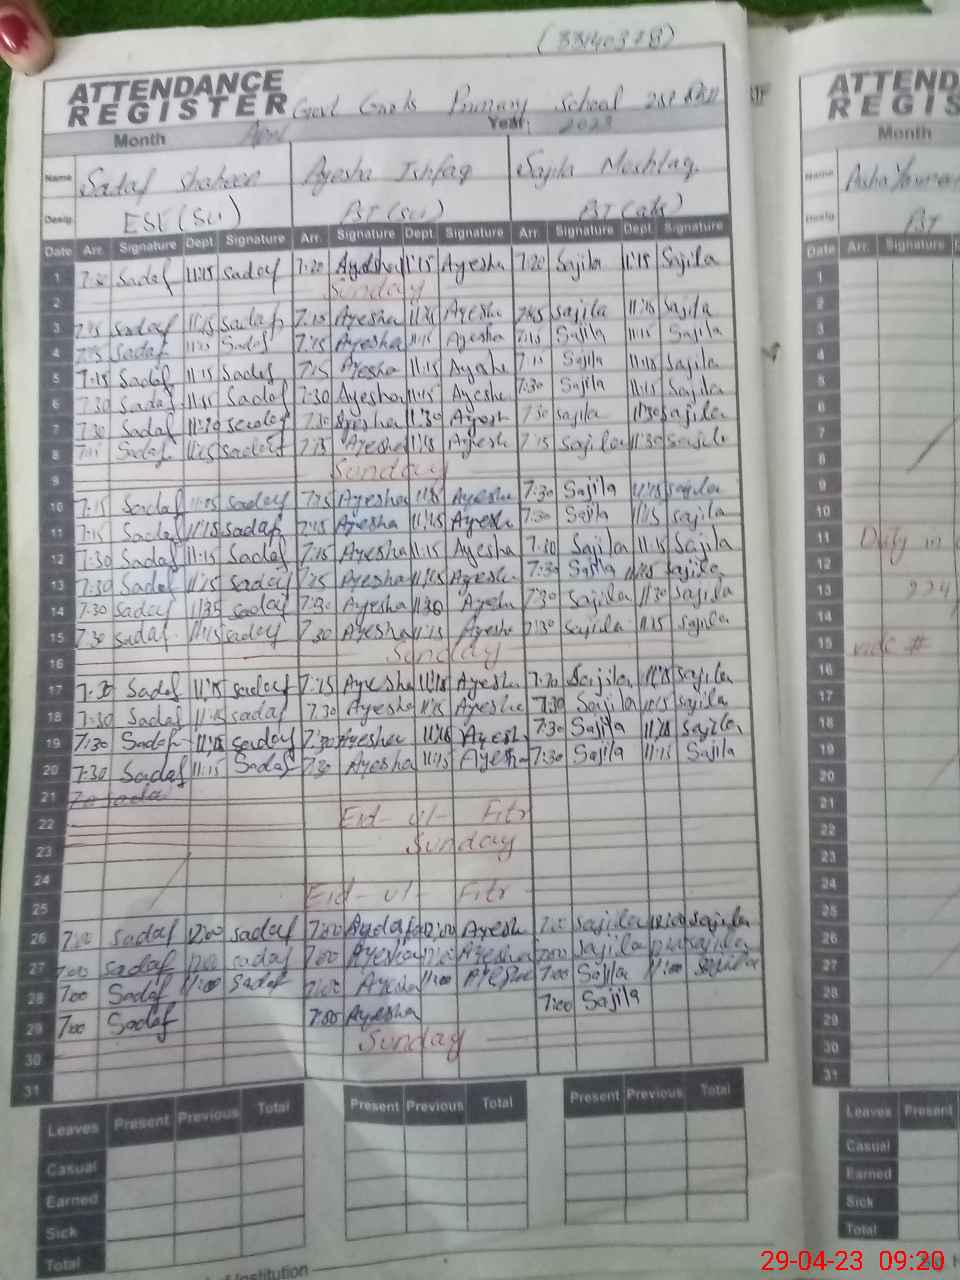 (33140378)
ATTENDANCE
REGISTER Govt Girls Primary School
Month April Year: 2023
Name Sadaf Shaheen Ayesha Ishfaq Sajila Mushtaq
Desig. ESE (Sci) PST (Sci) PST (arts)
Date Arr. Signature Dept. Signature Arr. Signature Dept. Signature Arr. Signature Dept. Signature
1 7:20 Sadaf 11:15 Sadaf 7:20 Ayesha 11:15 Ayesha 7:20 Sajila 11:15 Sajila
2 Sunday
3 Sadaf 11:15 Sadaf 7:15 Ayesha Ayesha Sajila 11:15 Sajila
4 Sadaf Sadaf 7:15 Ayesha 11:15 Ayesha 7:15 Sajila 11:15 Sajila
5 7:15 Sadaf 11:15 Sadaf 7:15 Ayesha 11:15 Ayesha Sajila 11:15 Sajila
6 7:30 Sadaf Sadaf 7:30 Ayesha 11:15 Ayesha 7:30 Sajila 11:15 Sajila
7 7:30 Sadaf Sadaf 7:30 Ayesha 11:30 Ayesha 7:30 Sajila 11:30 Sajila
8 Sadaf 11:15 Sadaf 7:15 Ayesha Ayesha 7:15 Sajila 11:30 Sajila
9 Sunday
10 7:15 Sadaf Sadaf 7:15 Ayesha Ayesha 7:30 Sajila 11:15 Sajila
11 7:15 Sadaf 11:15 Sadaf Ayesha 11:15 Ayesha 7:30 Sajila 11:15 Sajila
12 7:30 Sadaf 11:15 Sadaf 7:15 Ayesha 11:15 Ayesha 7:30 Sajila 11:15 Sajila
13 7:30 Sadaf 11:15 Sadaf Ayesha 11:15 Ayesha 7:30 Sajila 11:15 Sajila
14 7:30 Sadaf Sadaf 7:30 Ayesha 11:30 Ayesha 7:30 Sajila 11:30 Sajila
15 7:30 Sadaf 11:15 Sadaf 7:30 Ayesha 11:15 Ayesha 7:30 Sajila 11:15 Sajila
16 Sunday
17 7:30 Sadaf 11:15 Sadaf 7:15 Ayesha 11:15 Ayesha Sajila 11:15 Sajila
18 7:30 Sadaf 11:15 Sadaf 7:30 Ayesha 11:15 Ayesha 7:30 Sajila Sajila
19 7:30 Sadaf 11:15 Sadaf 7:30 Ayesha 11:15 Ayesha 7:30 Sajila 11:15 Sajila
20 7:30 Sadaf 11:15 Sadaf 7:30 Ayesha 11:15 Ayesha 7:30 Sajila 11:15 Sajila
21
22 Eid-ul-Fitr
23 Sunday
24
25 Eid-ul-Fitr
26 7:00 Sadaf 12:00 Sadaf 7:00 12:00 Ayesha 7:00 Sajila 12:00 Sajila
27 7:00 Sadaf 12:00 Sadaf 7:00 Ayesha 12:00 Ayesha 7:00 Sajila 12:00 Sajila
28 7:00 Sadaf 11:00 Sadaf 7:00 Ayesha 11:00 Ayesha 7:00 Sajila 11:00 Sajila
29 7:00 Sadaf 7:00 Ayesha 7:00 Sajila
30 Sunday
31
Leaves Present Previous Total Present Previous Total Present Previous Total
Casual
Earned
Sick
Total
of Institution
ATTEND
REGIS
Month
Name
Desig.
Date Arr. Signature
1
2
3
4
5
6
7
8
9
10
11 Duty in
12
13
14
15
16
17
18
19
20
21
22
23
24
25
26
27
28
29
30
31
Leaves Present
Casual
Earned
Sick
Total
29-04-23 09:20